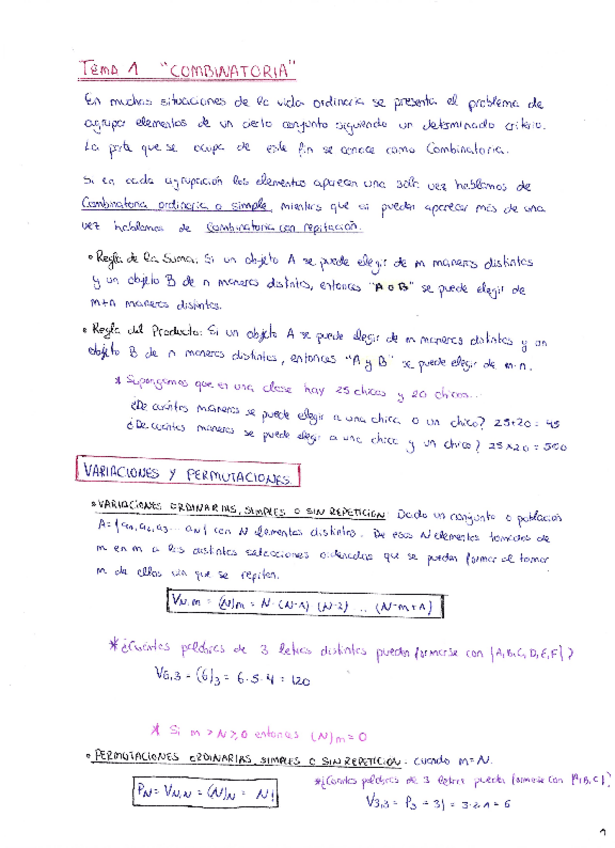 TEMA 1 "COMBINATORIA"
En muchas situaciones de la vida ordinaria se presenta el problema de
agrupar elementos de un cierto conjunto siguiendo un determinado criterio.
La parte que se ocupa de este fin se conoce como Combinatoria.
Si en cada agrupación los elementos aparecen una sola vez hablamos de
Combinatoria ordinaria o simple, mientras que si pueden aparecer más de una
vez hablamos de combinatoria con repitación.
• Regla de la Suma: Si un objeto A se puede elegir de m maneras distintas
y un objeto B de n maneras distintas, entonces "A o B" se puede elegir de
m+n maneras distintas.
• Regla del Producto: Si un objeto A se puede elegir de m maneras distintas y un
objeto B de n maneras distintas, entonces "A y B" se puede elegir de m·n.
* Supongamos que en una clase hay 25 chicas y 20 chicos...
¿De cuántas maneras se puede elegir a una chica o un chico? 25+20 = 45
¿De cuantas maneras se puede elegir a una chica y un chico? 25x20 = 500
VARIACIONES Y PERMUTACIONES
• VARIACIONES ORDINARIAS, SIMPLES O SIN REPETICION: Dado un conjunto o población
A={a1,a2,a3... aN} con N elementos distintos. De esos N elementos tomados de
m en m a las distintas selecciones ordenadas que se puedan formar al tomar
m de ellos sin que se repitan.
VN,m = (N)m = N·(N-1) (N-2) ... (N-m+1)
* ¿Cuántas palabras de 3 letras distintas pueden formarse con {A,B,C,D,E,F}?
V6,3 = (6)3 = 6·5·4 = 120
* Si m > N ≥ 0 entonces (N)m = 0
• PERMUTACIONES ORDINARIAS, SIMPLES O SIN REPETICION. cuando m=N.
PN = VN,N = (N)N = N!
* ¿Cuantas palabras de 3 letras pueden formarse con {A,B,C}?
V3,3 = P3 = 3! = 3·2·1 = 6
1